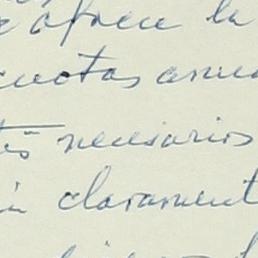 ofrece la
cuotas anua
necesarios
clarament